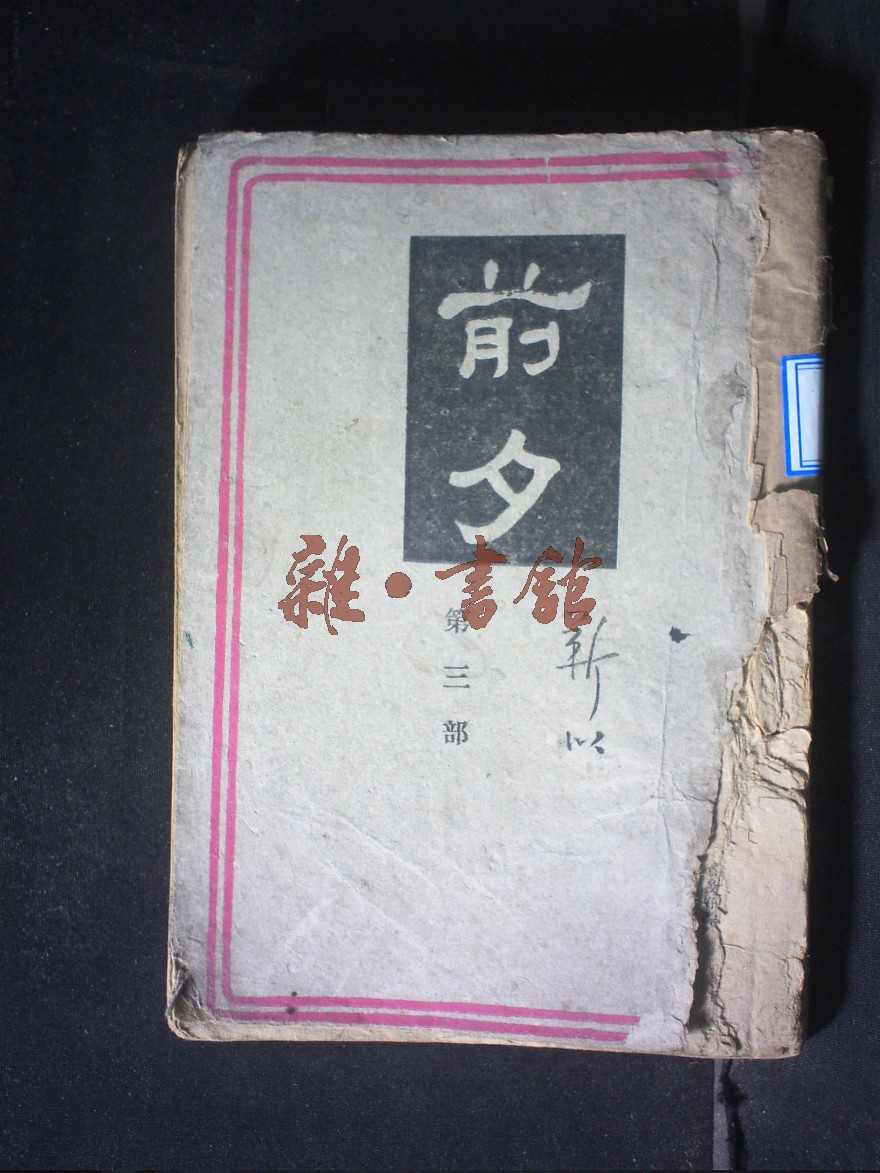 前夕
雜·書館
第三部
靳以